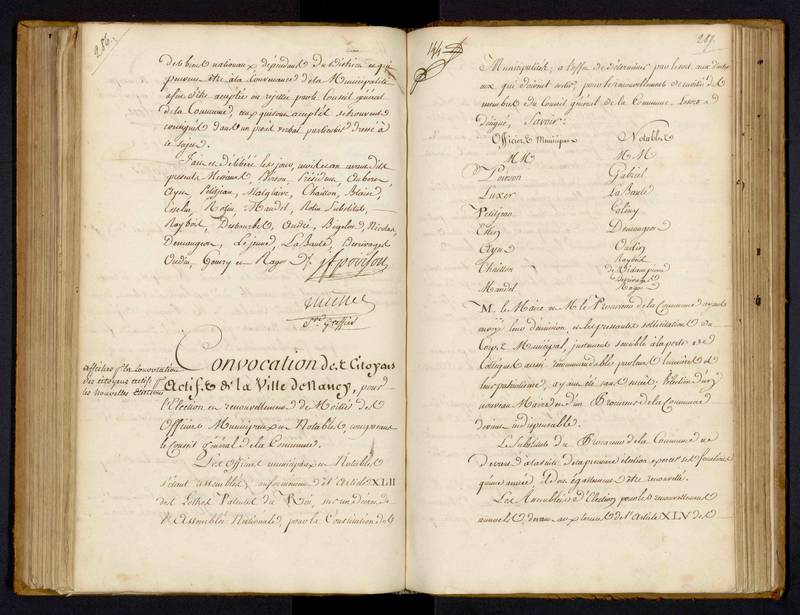 286.
des biens nationaux dependant du District et qui
peuvent être à la convenance de la Municipalité
afin d'être acceptés ou rejettés par le Conseil général
de la Commune, ceux qui sont acceptés se trouvent
consignés dans un procès verbal particulier dressé à
ce sujet.
Fait et délibéré les jour, mois et an avant dits
présents Messieurs Poirson, Président,
Ayen, Petitjean, Malglaive, Chaillon, Blaise,
Rolin, Mandel, Rolin Substitut,
Raybois, Oudié, Bigelon, Nicolas,
Demangeon, Lejeune, La Baulé,
Oudin, Goury et Rago
Sre. Greffier
affiches pr. la Convocation
des citoyens actifs pr.
les Nouvelles élections
Convocation des Citoyens
Actifs de la Ville de Nancy, pour
l'Election en renouvellement de Moitié des
Officiers Municipaux et Notables, composant
le Conseil général de la Commune.
Les Officiers municipaux et Notables
s'étant assemblés, conformément à l'Article XLII
des Lettres Patentes du Roi, sur un décret de
l'Assemblée Nationale, pour la Constitution des
144
287.
Municipalités, à l'effet de déterminer par le sort, ceux d'entre
eux qui doivent sortir, pour le renouvellement de moitié des
membres du Conseil général de la Commune le sort a
désigné, Savoir:
Officiers Municipaux Notables
MM MM
Poirson Gabriel
Luxer La Baulé
Petitjean Coliny
Demangeon
Ayen Oudin
Raybois
Chaillon
Mandel Rago
M. le Maire et M. le Procureur de la Commune ayant
envoyé leur démission, et les pressantes sollicitations du
Corps Municipal, justement sensible à la perte de
Collègues aussi recommandables par leurs lumières et
leur patriotisme, ayant été sans succès; l'élection d'un
nouveau Maire et d'un Procureur de la Commune
devient indispensable.
Le Substitut du Procureur de la Commune ne
devant à la suite de la première élection exercer ses fonctions
qu'une année, il doit également être renouvellé.
Les Assemblées d'Election pour les renouvellements
annuels, devant aux termes de l'Article XLV des